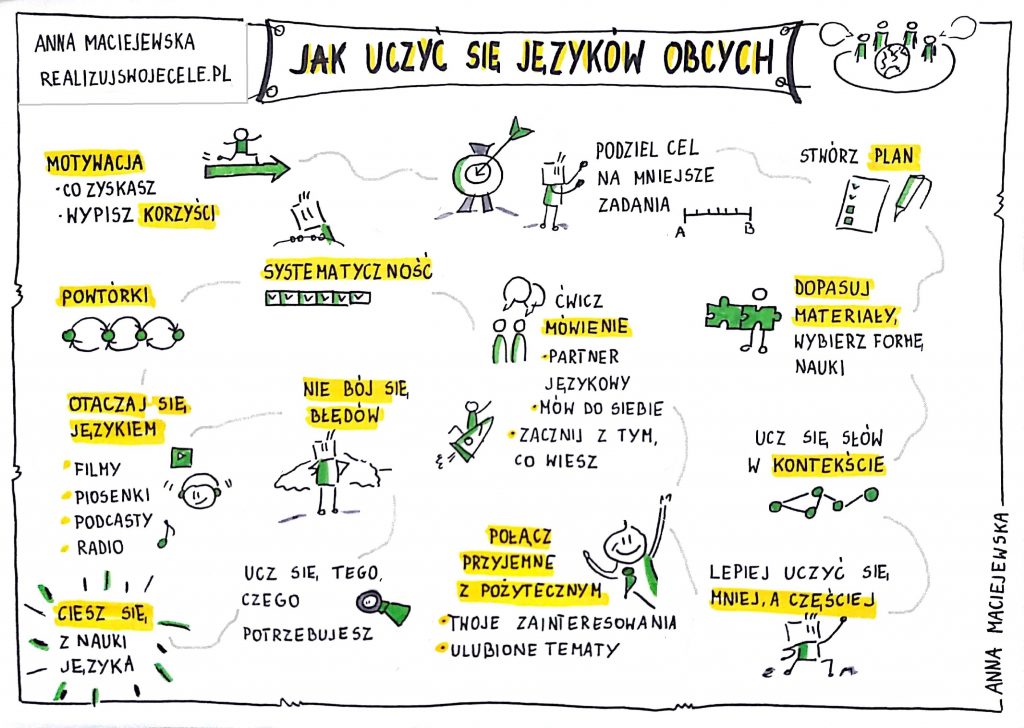 ANNA MACIEJEWSKA
REALIZUJSWOJECELE.PL
JAK UCZYĆ SIĘ JĘZYKÓW OBCYCH
MOTYWACJA
• CO ZYSKASZ
• WYPISZ KORZYŚCI
PODZIEL CEL
NA MNIEJSZE
ZADANIA
A B
STWÓRZ PLAN
DOPASUJ
MATERIAŁY,
WYBIERZ FORMĘ
NAUKI
UCZ SIĘ SŁÓW
W KONTEKŚCIE
LEPIEJ UCZYĆ SIĘ
MNIEJ, A CZĘŚCIEJ
ĆWICZ
MÓWIENIE
• PARTNER
JĘZYKOWY
• MÓW DO SIEBIE
• ZACZNIJ Z TYM,
CO WIESZ
SYSTEMATYCZNOŚĆ
POWTÓRKI
OTACZAJ SIĘ
JĘZYKIEM
• FILMY
• PIOSENKI
• PODCASTY
• RADIO
NIE BÓJ SIĘ
BŁĘDÓW
POŁĄCZ
PRZYJEMNE
Z POŻYTECZNYM
• TWOJE ZAINTERESOWANIA
• ULUBIONE TEMATY
UCZ SIĘ TEGO,
CZEGO
POTRZEBUJESZ
CIESZ SIĘ
Z NAUKI
JĘZYKA
ANNA MACIEJEWSKA